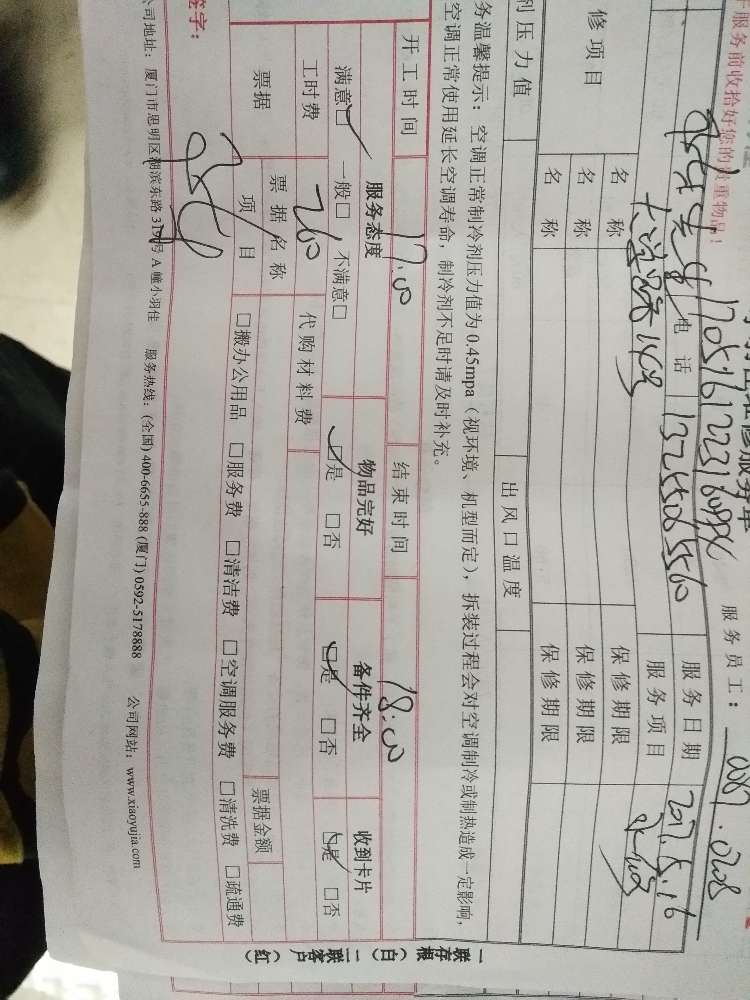 服务前收拾好您的贵重物品！
维修服务单
服务员工：
先生 电话 13255065560 服务日期 2017.5.16
大学路148号 服务项目
修项目 名称 保修期限
名称 保修期限
名称 保修期限
剂压力值 出风口温度
务温馨提示：空调正常制冷剂压力值为0.45mpa（视环境、机型而定），拆装过程会对空调制冷或制热造成一定影响，
空调正常使用延长空调寿命，制冷剂不足时请及时补充。
开工时间 17:00 结束时间 18:00
服务态度 物品完好 备件齐全 收到卡片
满意□ 一般□ 不满意□ □是 □否 □是 □否 □是 □否
工时费 260 代购材料费
票据 票据名称 票据金额
项目 □搬办公用品 □服务费 □清洁费 □空调服务费 □清洗费 □疏通费
签字：
公司地址：厦门市思明区湖滨东路319号A幢小羽佳 服务热线：(全国) 400-6655-888 (厦门) 0592-5178888 公司网站：www.xiaoyujia.com
一联存根（白）二联客户（红）